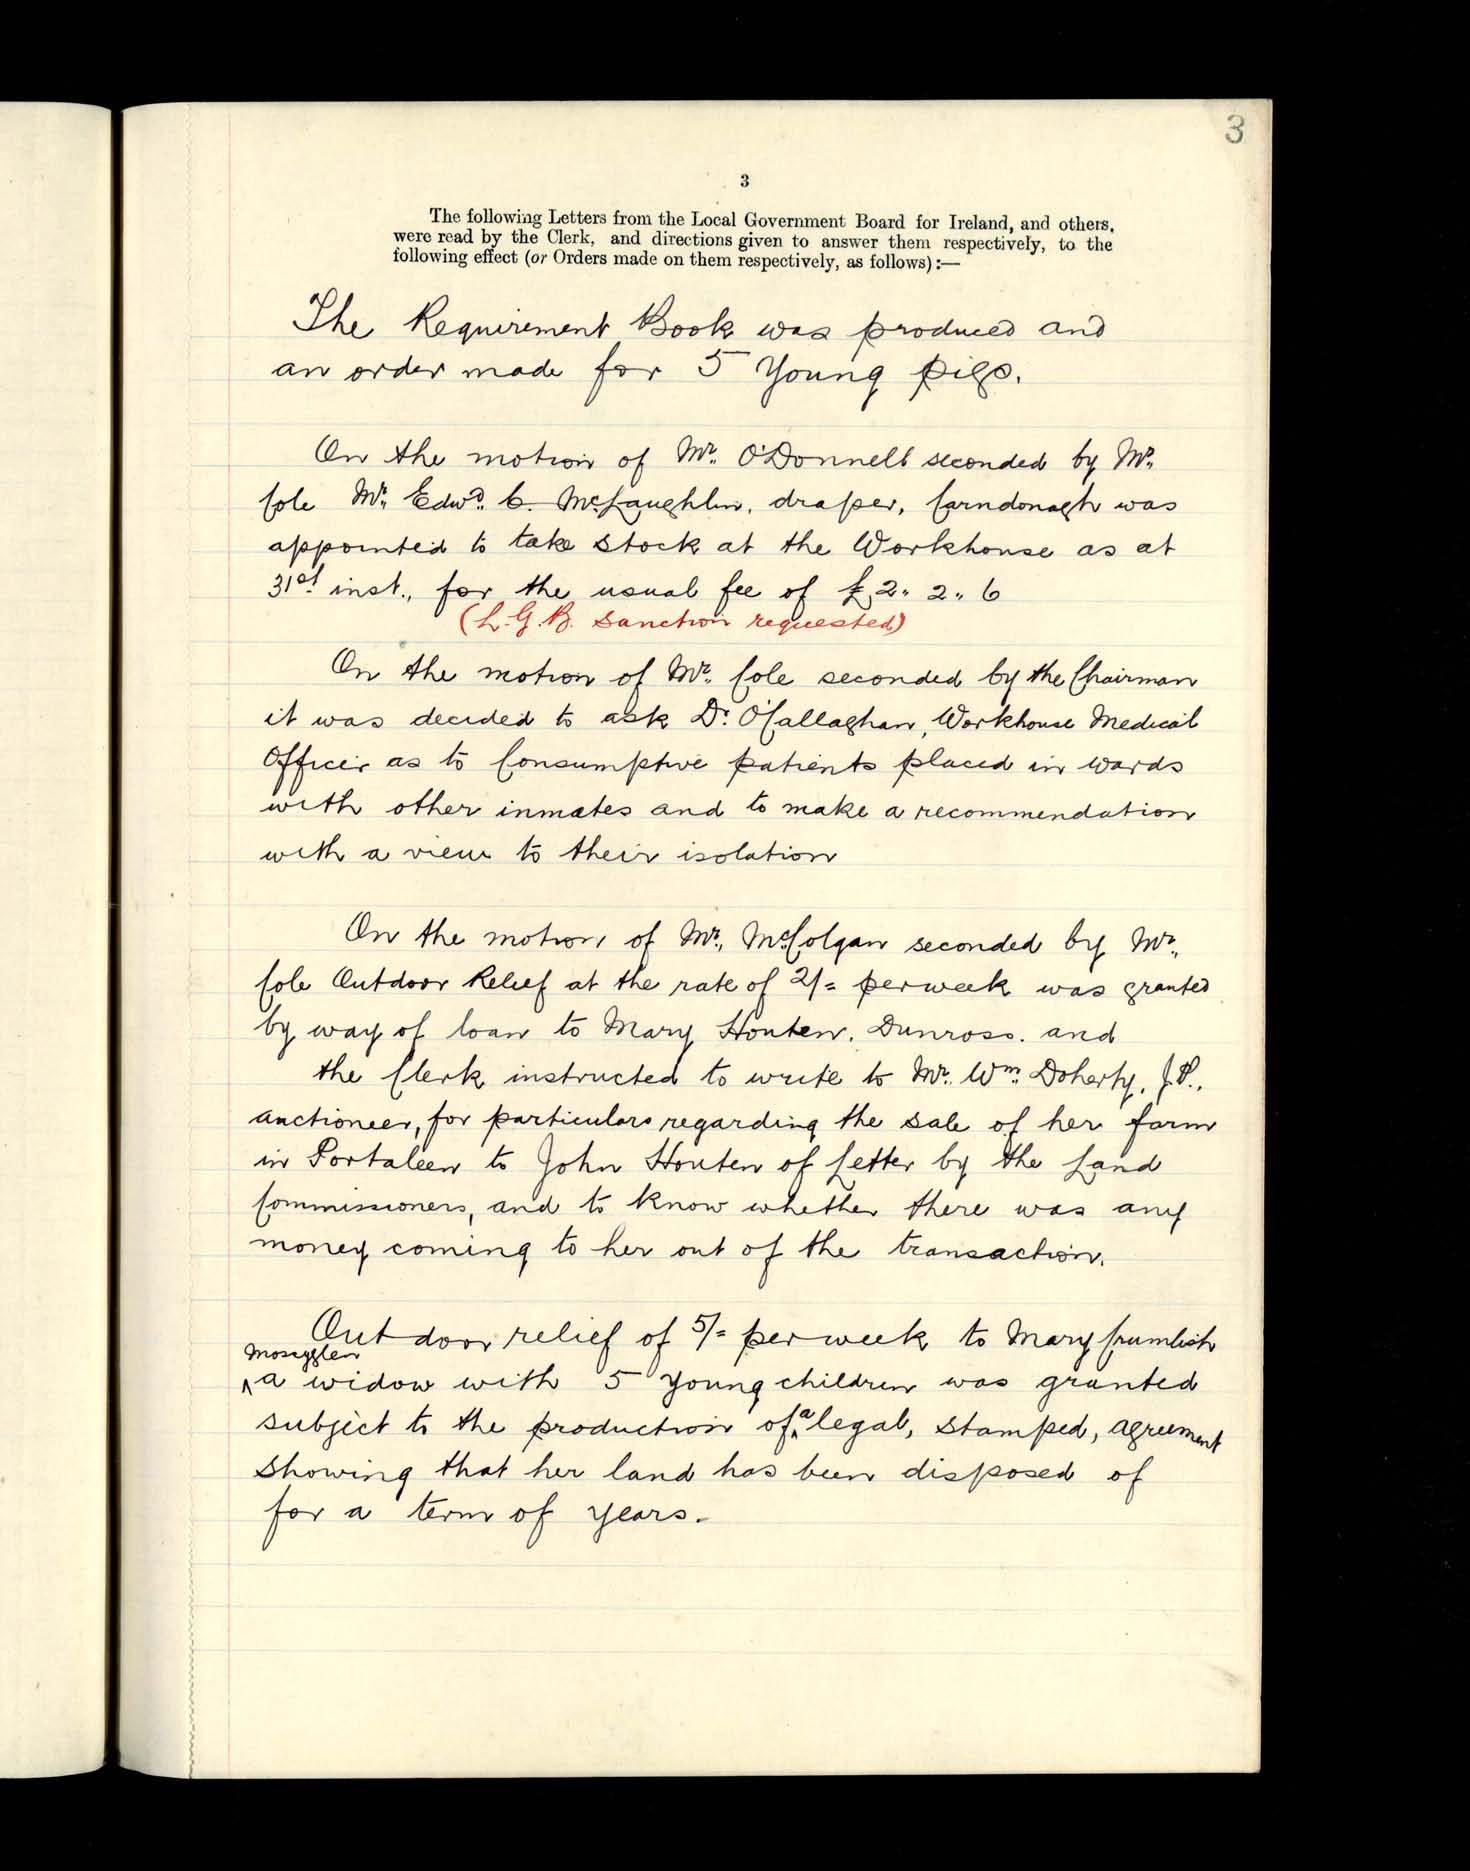 3
3
The following Letters from the Local Government Board for Ireland, and others,
were read by the Clerk, and directions given to answer them respectively, to the
following effect (or Orders made on them respectively, as follows):—
The Requirement Book was produced and
an order made for 5 Young pigs.
On the motion of Mr. O'Donnell seconded by Mr.
Cole Mr. Edwd. C. McLaughlin, draper, Carndonagh was
appointed to take stock at the Workhouse as at
31st inst., for the usual fee of £2„ 2„ 6
(L.G.B. Sanction requested)
On the motion of Mr. Cole seconded by the Chairman
it was decided to ask Dr. O'Callaghan, Workhouse Medical
Officer as to Consumptive patients placed in wards
with other inmates and to make a recommendation
with a view to their isolation
On the motion of Mr. McColgan seconded by Mr.
Cole Outdoor Relief at the rate of 2/= per week was granted
by way of loan to Mary Houten, Dunross. and
the Clerk instructed to write to Mr. Wm. Doherty, J.P.,
auctioneer, for particulars regarding the sale of her farm
in Portaleen to John Houten of Letter by the Land
Commissioners, and to know whether there was any
money coming to her out of the transaction.
Outdoor relief of 5/= per week to Mary Crumlish
Mossyglen
^a widow with 5 young children was granted
subject to the production of ^a legal, stamped, agreement
showing that her land has been disposed of
for a term of years.-